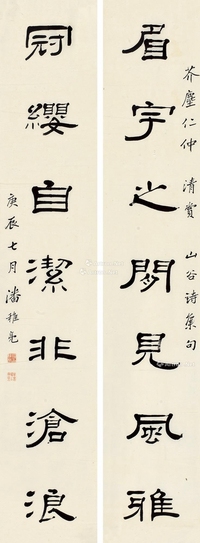 芥塵仁仲 清賞 山谷诗集句
眉宇之間見風雅
冠纓自潔非滄浪
庚辰七月 潘稚亮